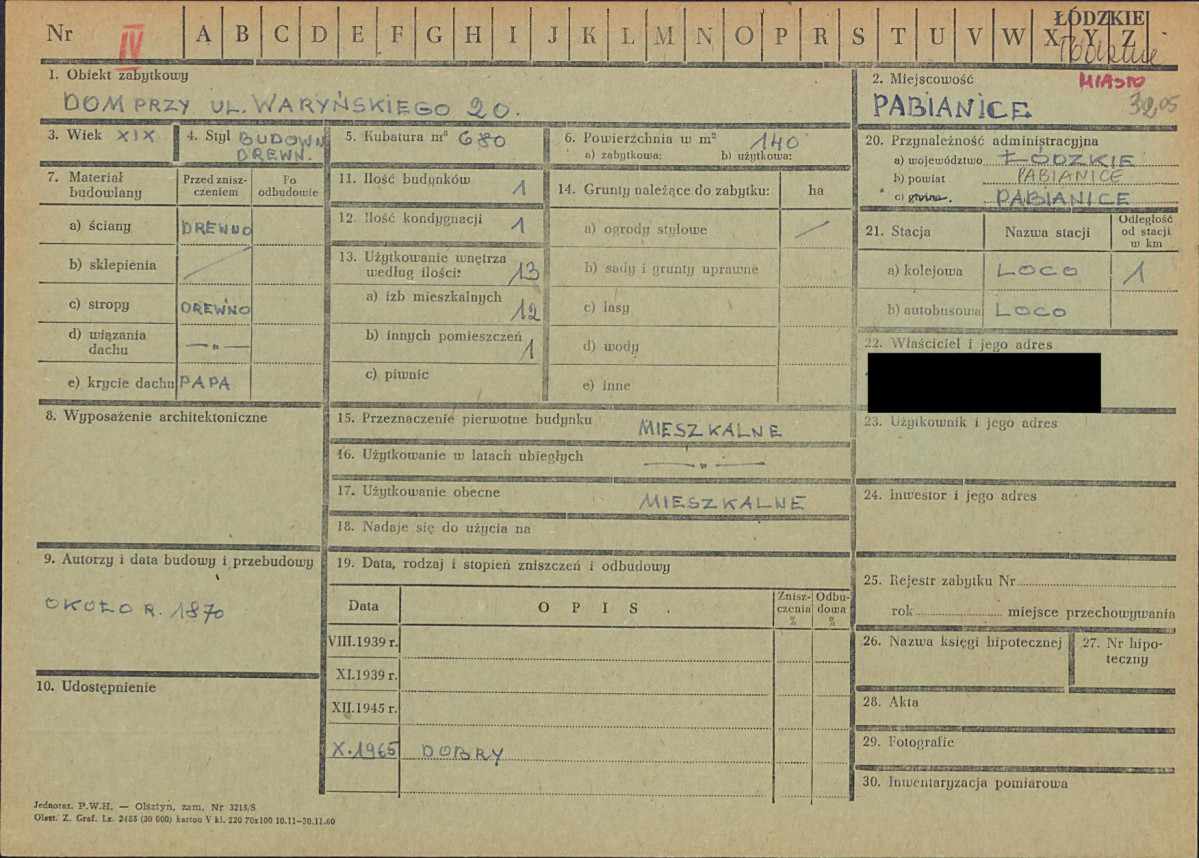 Nr IV A B C D E F G H I J K L M N O P R S T U V W X Y Z
ŁÓDZKIE
1. Obiekt zabytkowy
DOM PRZY UL. WARYŃSKIEGO 20.
2. Miejscowość
MIASTO
PABIANICE
3. Wiek XIX
4. Styl BUDOWN.
DREWN.
5. Kubatura m³ 680
6. Powierzchnia w m² 140
a) zabytkowa: b) użytkowa:
7. Materiał budowlany
Przed znisz-
czeniem
Po
odbudowie
a) ściany DREWNO
b) sklepienia /
c) stropy DREWNO
d) wiązania
dachu —„—
e) krycie dachu PAPA
8. Wyposażenie architektoniczne
9. Autorzy i data budowy i przebudowy
OKOŁO R. 1870
10. Udostępnienie
11. Ilość budynków 1
12. Ilość kondygnacji 1
13. Użytkowanie wnętrza
według ilości: 13
a) izb mieszkalnych 12
b) innych pomieszczeń 1
c) piwnic
14. Grunty należące do zabytku: ha
a) ogrody stylowe /
b) sady i grunty uprawne
c) lasy
d) wody
e) inne
15. Przeznaczenie pierwotne budynku MIESZKALNE
16. Użytkowanie w latach ubiegłych —„—
17. Użytkowanie obecne MIESZKALNE
18. Nadaje się do użycia na
19. Data, rodzaj i stopień zniszczeń i odbudowy
Data
OPIS
Znisz-
czenia
%
Odbu-
dowa
%
VIII.1939 r.
XI.1939 r.
XII.1945 r.
X.1965 DOBRY
20. Przynależność administracyjna
a) województwo ŁÓDZKIE
b) powiat PABIANICE
c) gmina PABIANICE
21. Stacja
Nazwa stacji
Odległość
od stacji
w km
a) kolejowa LOCO 1
b) autobusowa LOCO
22. Właściciel i jego adres
23. Użytkownik i jego adres
24. Inwestor i jego adres
25. Rejestr zabytku Nr
rok miejsce przechowywania
26. Nazwa księgi hipotecznej
27. Nr hipo-
teczny
28. Akta
29. Fotografie
30. Inwentaryzacja pomiarowa
Jednoraz. P.W.H. — Olsztyn, zam. Nr 3215/S
Olszt. Z. Graf. Lz. 2485 (30 000) karton V kl. 220 70x100 10.11—30.11.60